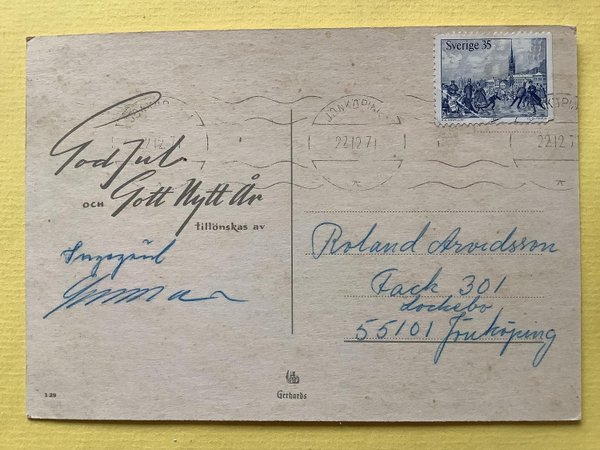 Sverige 35
JÖNKÖPING
22.12.71
God Jul
OCH Gott Nytt År
tillönskas av
Ingegärd
Gunnar
Roland Arvidsson
Fack 301
Lockebo
55101 Jönköping
129
Gerhards